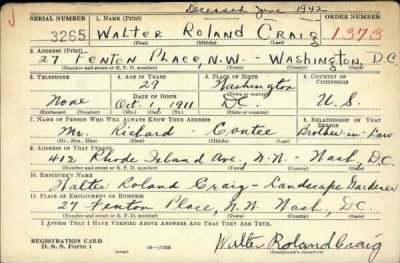 Deceased June 1942
J
SERIAL NUMBER 1. NAME (Print) ORDER NUMBER
3265 WALTER ROLAND CRAIG 1373
(First) (Middle) (Last)
2. ADDRESS (Print)
27 FENTON PLACE, N.W. - WASHINGTON, D.C.
(Number and street or R. F. D. number) (Town) (County) (State)
3. TELEPHONE 4. AGE IN YEARS 5. PLACE OF BIRTH 6. COUNTRY OF CITIZENSHIP
29 Washington
DATE OF BIRTH (Town or county)
None Oct. 1 1911 D.C. U.S.
(Exchange) (Number) (Mo.) (Day) (Yr.) (State or country)
7. NAME OF PERSON WHO WILL ALWAYS KNOW YOUR ADDRESS 8. RELATIONSHIP OF THAT PERSON
Mr. Richard - Contee Brother-in-Law
(Mr., Mrs., Miss) (First) (Middle) (Last)
9. ADDRESS OF THAT PERSON
412 Rhode Island Ave., N.W. - Wash, D.C.
(Number and street or R. F. D. number) (Town) (County) (State)
10. EMPLOYER'S NAME
Walter Roland Craig - Landscape Gardener
11. PLACE OF EMPLOYMENT OR BUSINESS
27 Fenton Place, N.W. Wash, D.C.
(Number and street or R. F. D. number) (Town) (County) (State)
I AFFIRM THAT I HAVE VERIFIED ABOVE ANSWERS AND THAT THEY ARE TRUE.
REGISTRATION CARD
D. S. S. Form 1 (over) 16-17105 Walter Roland Craig
(Registrant's signature)